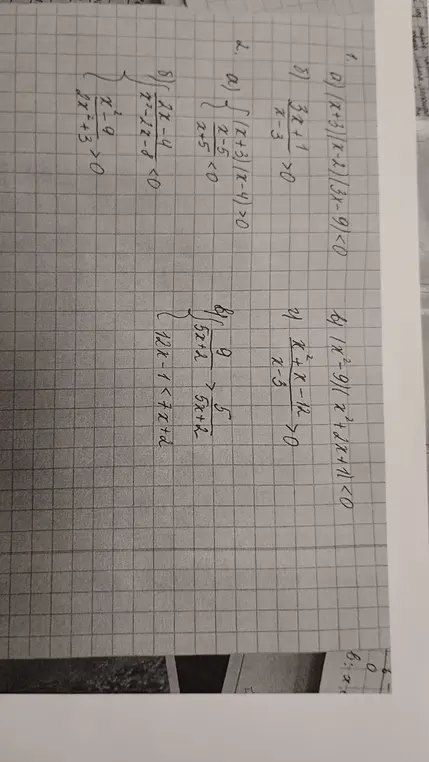 1.
а) (x+3)(x-2)(3x-9)<0
в) (x²-9)(x²+2x+1)<0
б) (3x+1)/(x-3) >0
г) (x²+x-12)/(x-3) >0
2.
а) { (x+3)(x-4)>0
(x-5)/(x+5) <0
в) { 9/(5x+2) > 5/(5x+2)
12x-1<7x+2
б) { (2x-4)/(x²-2x-8) <0
(x²-9)/(2x²+3) >0